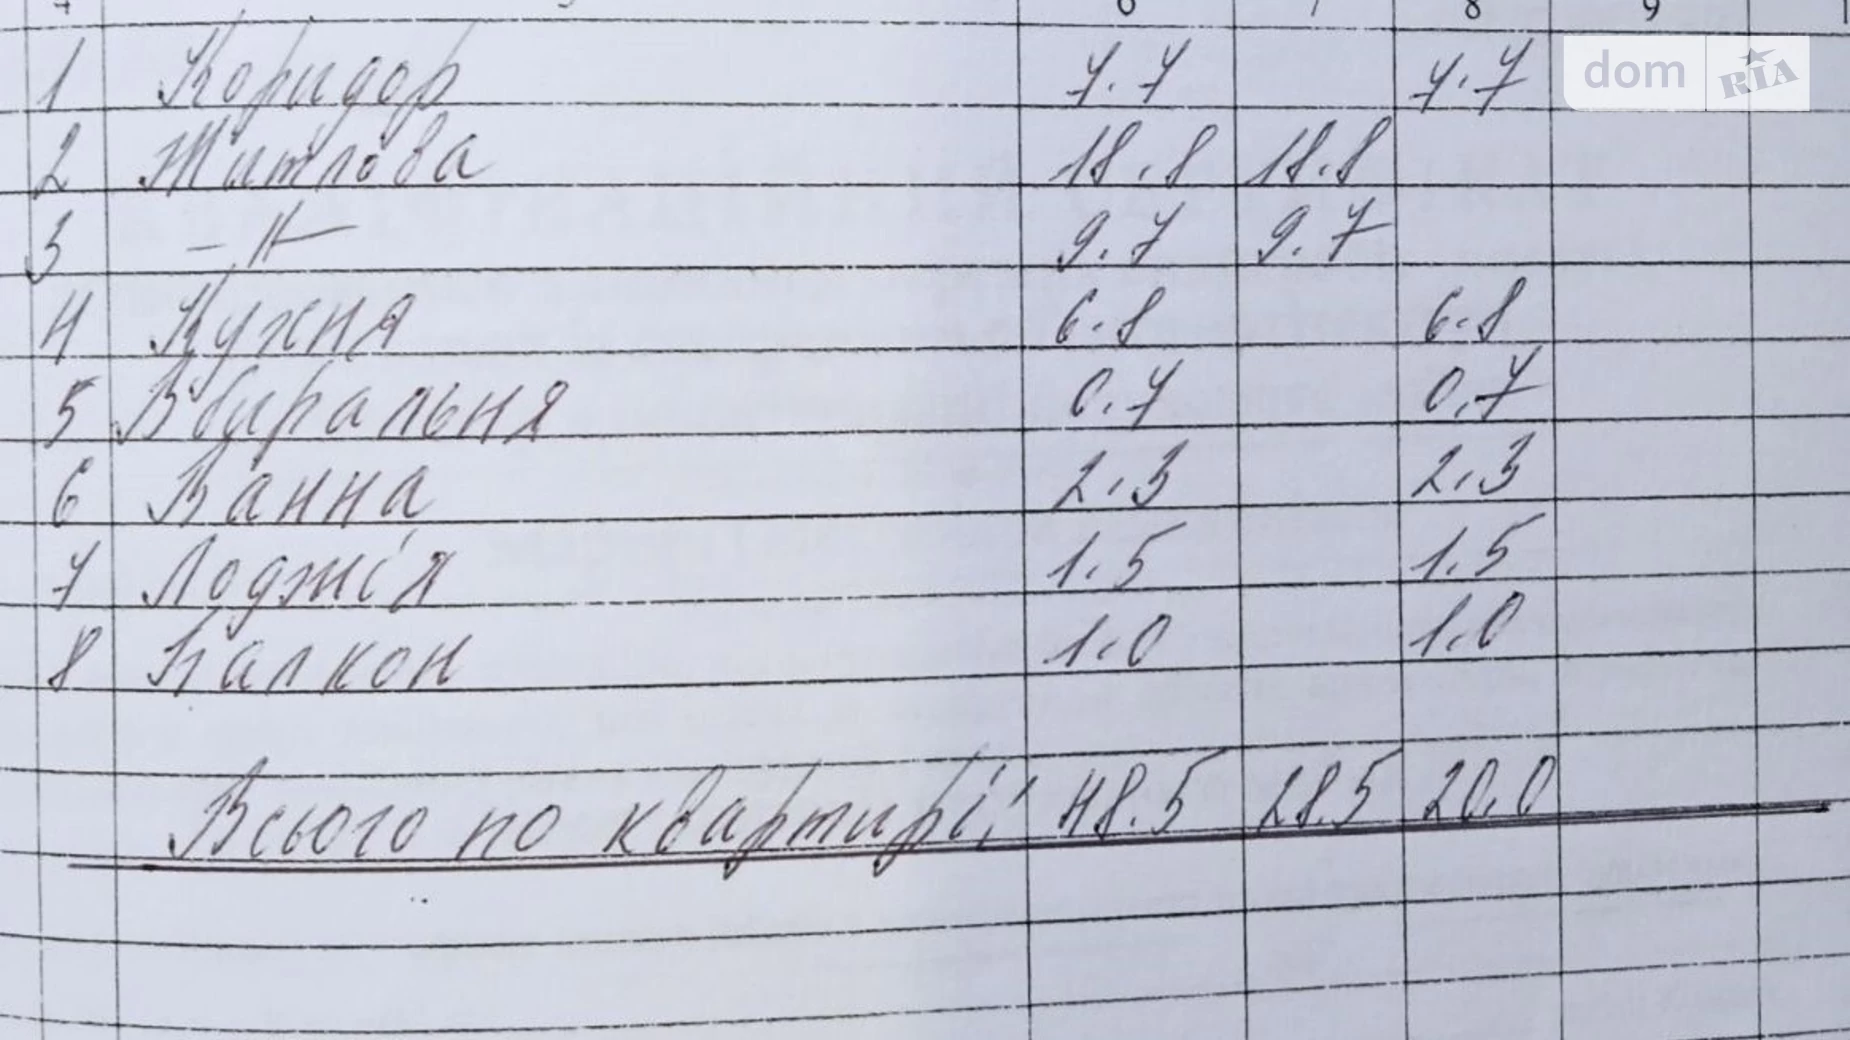 6 7 8 9
1 Коридор 7.7 7.7
2 Житлова 18.8 18.8
3 -//- 9.7 9.7
4 Кухня 6.8 6.8
5 Вбиральня 0.7 0.7
6 Ванна 2.3 2.3
7 Лоджія 1.5 1.5
8 Балкон 1.0 1.0
Всього по квартирі: 48.5 28.5 20.0
dom RIA